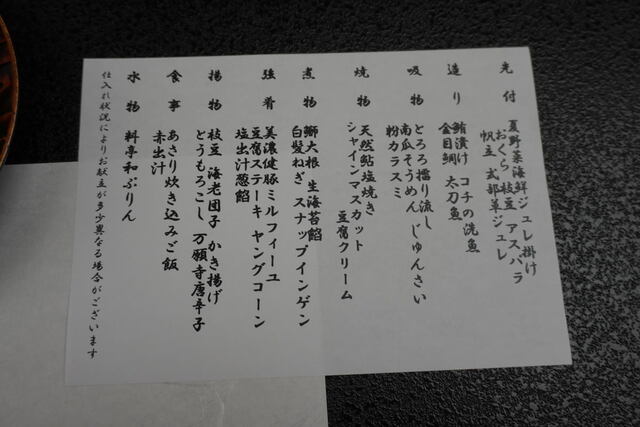 先付
夏野菜海鮮ジュレ掛け
おくら 枝豆 アスパラ
帆立 式部草ジュレ
造り
鮪漬け コチの洗魚
金目鯛 太刀魚
吸物
とろろ擂り流し
南瓜そうめん じゅんさい
粉カラスミ
焼物
天然鮎塩焼き
シャインマスカット
豆腐クリーム
煮物
鰤大根 生海苔餡
白髪ねぎ スナップインゲン
強肴
美濃健豚ミルフィーユ
豆腐ステーキ ヤングコーン
塩出汁葱餡
揚物
枝豆 海老団子 かき揚げ
とうもろこし 万願寺唐辛子
食事
あさり炊き込みご飯
赤出汁
水物
料亭和ぷりん
仕入れ状況によりお献立が多少異なる場合がございます